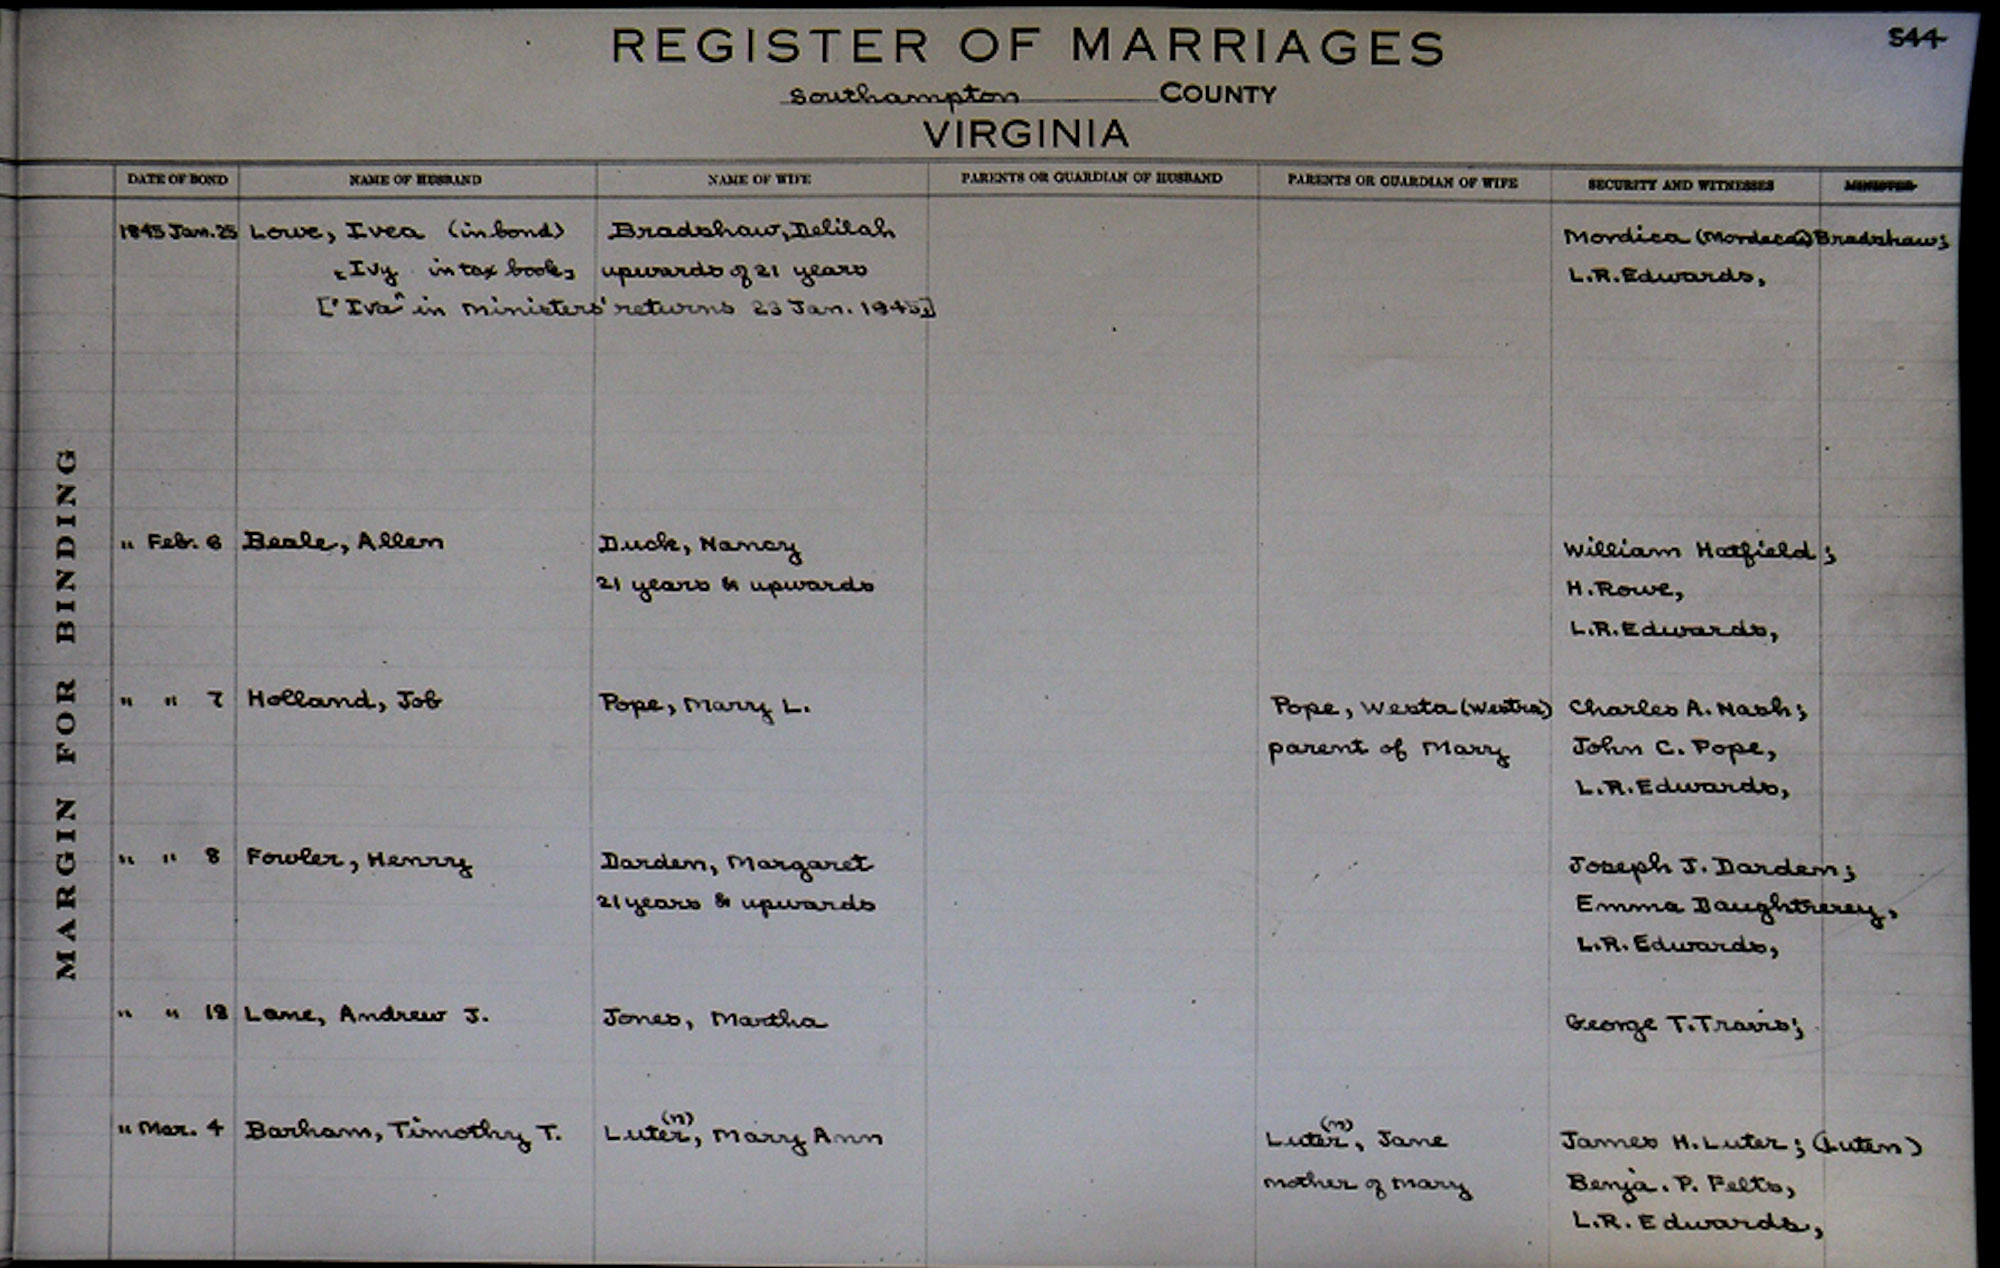 REGISTER OF MARRIAGES
544
Southampton COUNTY
VIRGINIA
DATE OF BOND NAME OF HUSBAND NAME OF WIFE PARENTS OR GUARDIAN OF HUSBAND PARENTS OR GUARDIAN OF WIFE SECURITY AND WITNESSES MINISTER
1845 Jan. 25 Lowe, Ivea (in bond) Bradshaw, Delilah Mordica (Mordecai) Bradshaw;
[Ivy in tax book] upwards of 21 years L.R. Edwards,
["Iva" in Ministers' returns 23 Jan. 1845]
" Feb. 6 Beale, Allen Duck, Nancy William Hatfield;
21 years & upwards H. Rowe,
L.R. Edwards,
" " 7 Holland, Job Pope, Mary L. Pope, Westa (Westra) Charles A. Nash;
parent of Mary John C. Pope,
L.R. Edwards,
" " 8 Fowler, Henry Darden, Margaret Joseph J. Darden;
21 years & upwards Emma Daughtrerey,
L.R. Edwards,
" " 18 Lane, Andrew J. Jones, Martha George T. Travis;
(n) (n)
" Mar. 4 Barham, Timothy T. Luter, Mary Ann Luter, Jane James H. Luter; (Luten)
mother of Mary Benja. P. Felts,
L.R. Edwards,
MARGIN FOR BINDING